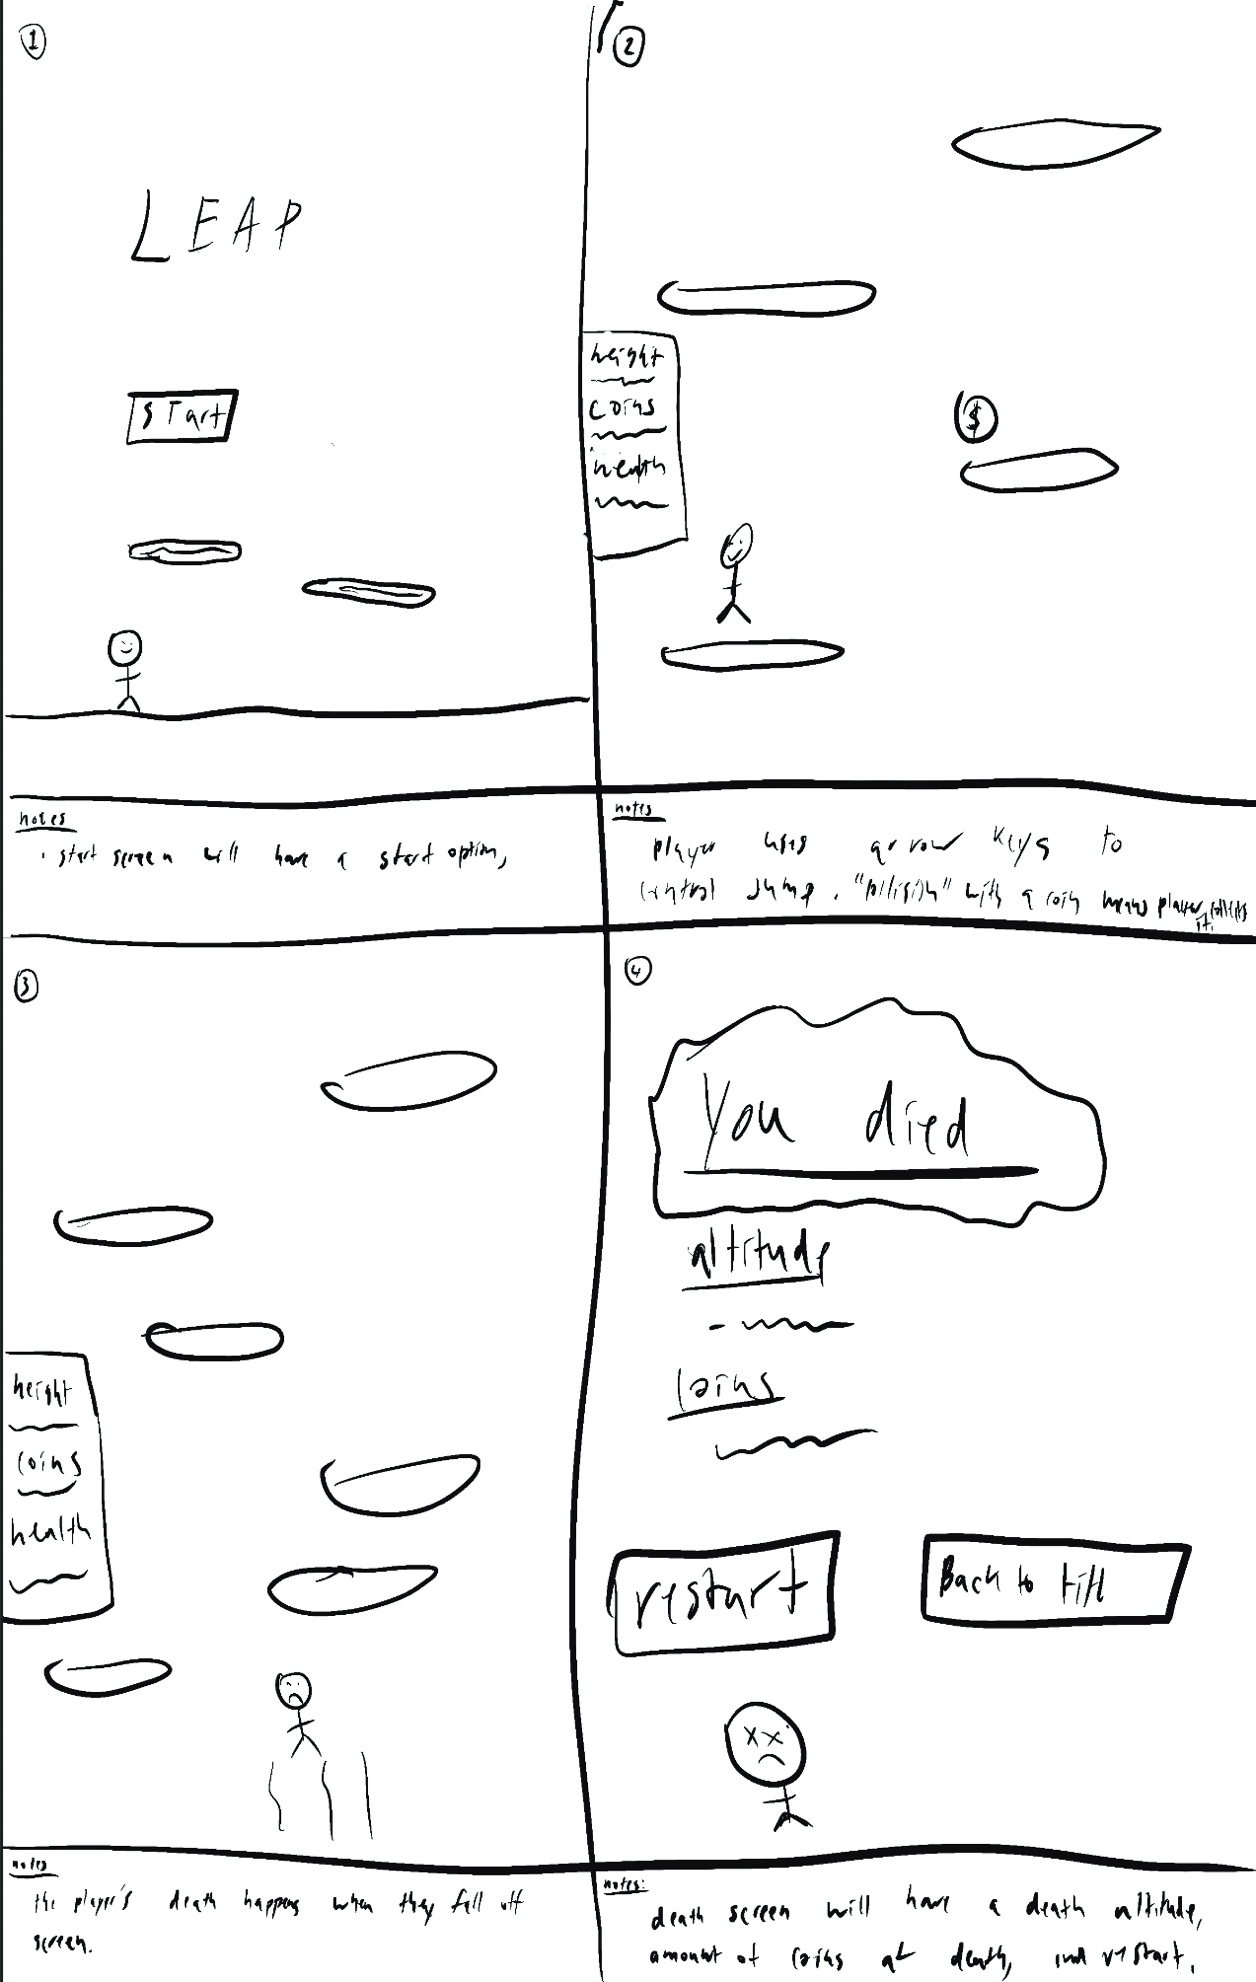 1
LEAP
START
notes
· start screen will have a start option,
2
height
coins
health
$
notes
player uses arrow keys to
control jump. "collision" with a coin means player collects
it.
3
height
coins
health
notes
the player's death happens when they fall off
screen.
4
You died
altitude
coins
restart
Back to title
notes:
death screen will have a death altitude,
amount of coins at death, and restart.